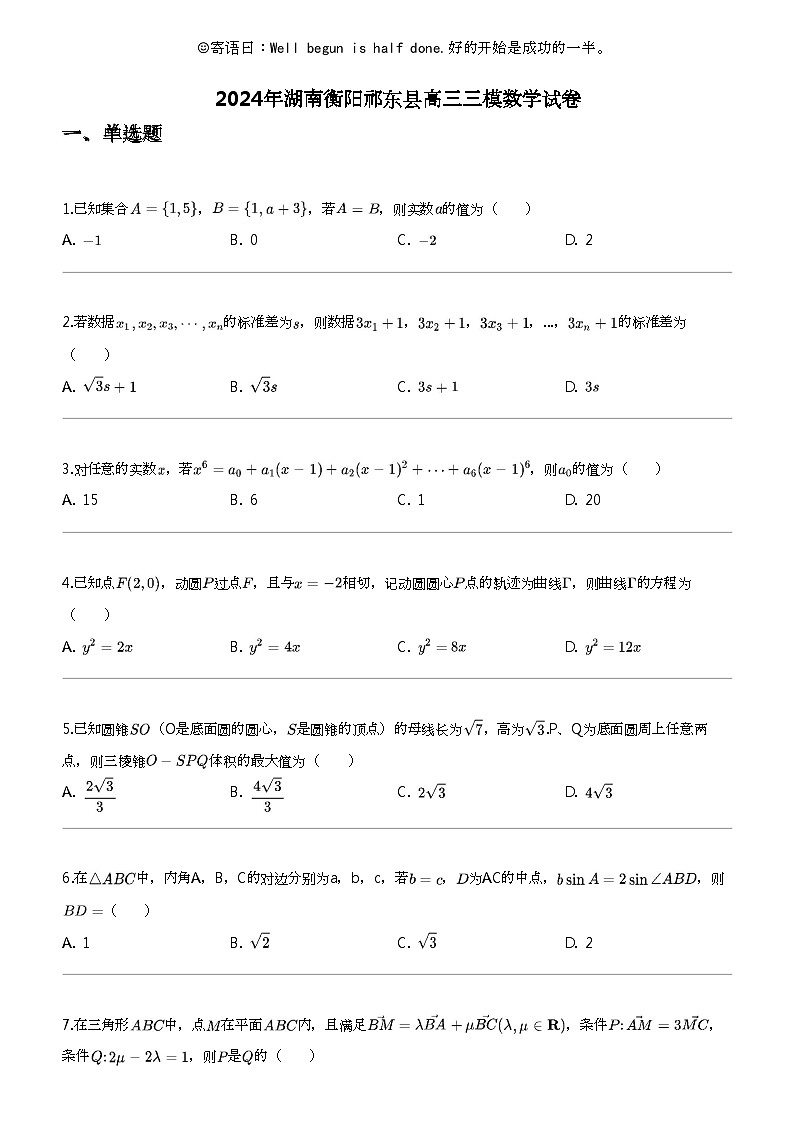 ☺寄语日：Well begun is half done.好的开始是成功的一半。
2024年湖南衡阳祁东县高三三模数学试卷
一、单选题
1.已知集合A = {1, 5}，B = {1, a + 3}，若A = B，则实数a的值为（　　）
A. −1 B. 0 C. −2 D. 2
2.若数据x₁, x₂, x₃, ⋯, xₙ的标准差为s，则数据3x₁ + 1，3x₂ + 1，3x₃ + 1，…，3xₙ + 1的标准差为
（　　）
A. √3s + 1 B. √3s C. 3s + 1 D. 3s
3.对任意的实数x，若x⁶ = a₀ + a₁(x − 1) + a₂(x − 1)² + ⋯ + a₆(x − 1)⁶，则a₀的值为（　　）
A. 15 B. 6 C. 1 D. 20
4.已知点F(2, 0)，动圆P过点F，且与x = −2相切，记动圆圆心P点的轨迹为曲线Γ，则曲线Γ的方程为
（　　）
A. y² = 2x B. y² = 4x C. y² = 8x D. y² = 12x
5.已知圆锥SO（O是底面圆的圆心，S是圆锥的顶点）的母线长为√7，高为√3.P、Q为底面圆周上任意两
点，则三棱锥O − SPQ体积的最大值为（　　）
A. 2√3/3 B. 4√3/3 C. 2√3 D. 4√3
6.在△ABC中，内角A，B，C的对边分别为a，b，c，若b = c，D为AC的中点，b sin A = 2 sin ∠ABD，则
BD =（　　）
A. 1 B. √2 C. √3 D. 2
7.在三角形ABC中，点M在平面ABC内，且满足B⃗M = λB⃗A + μB⃗C(λ, μ ∈ R)，条件P: A⃗M = 3M⃗C，
条件Q: 2μ − 2λ = 1，则P是Q的（　　）